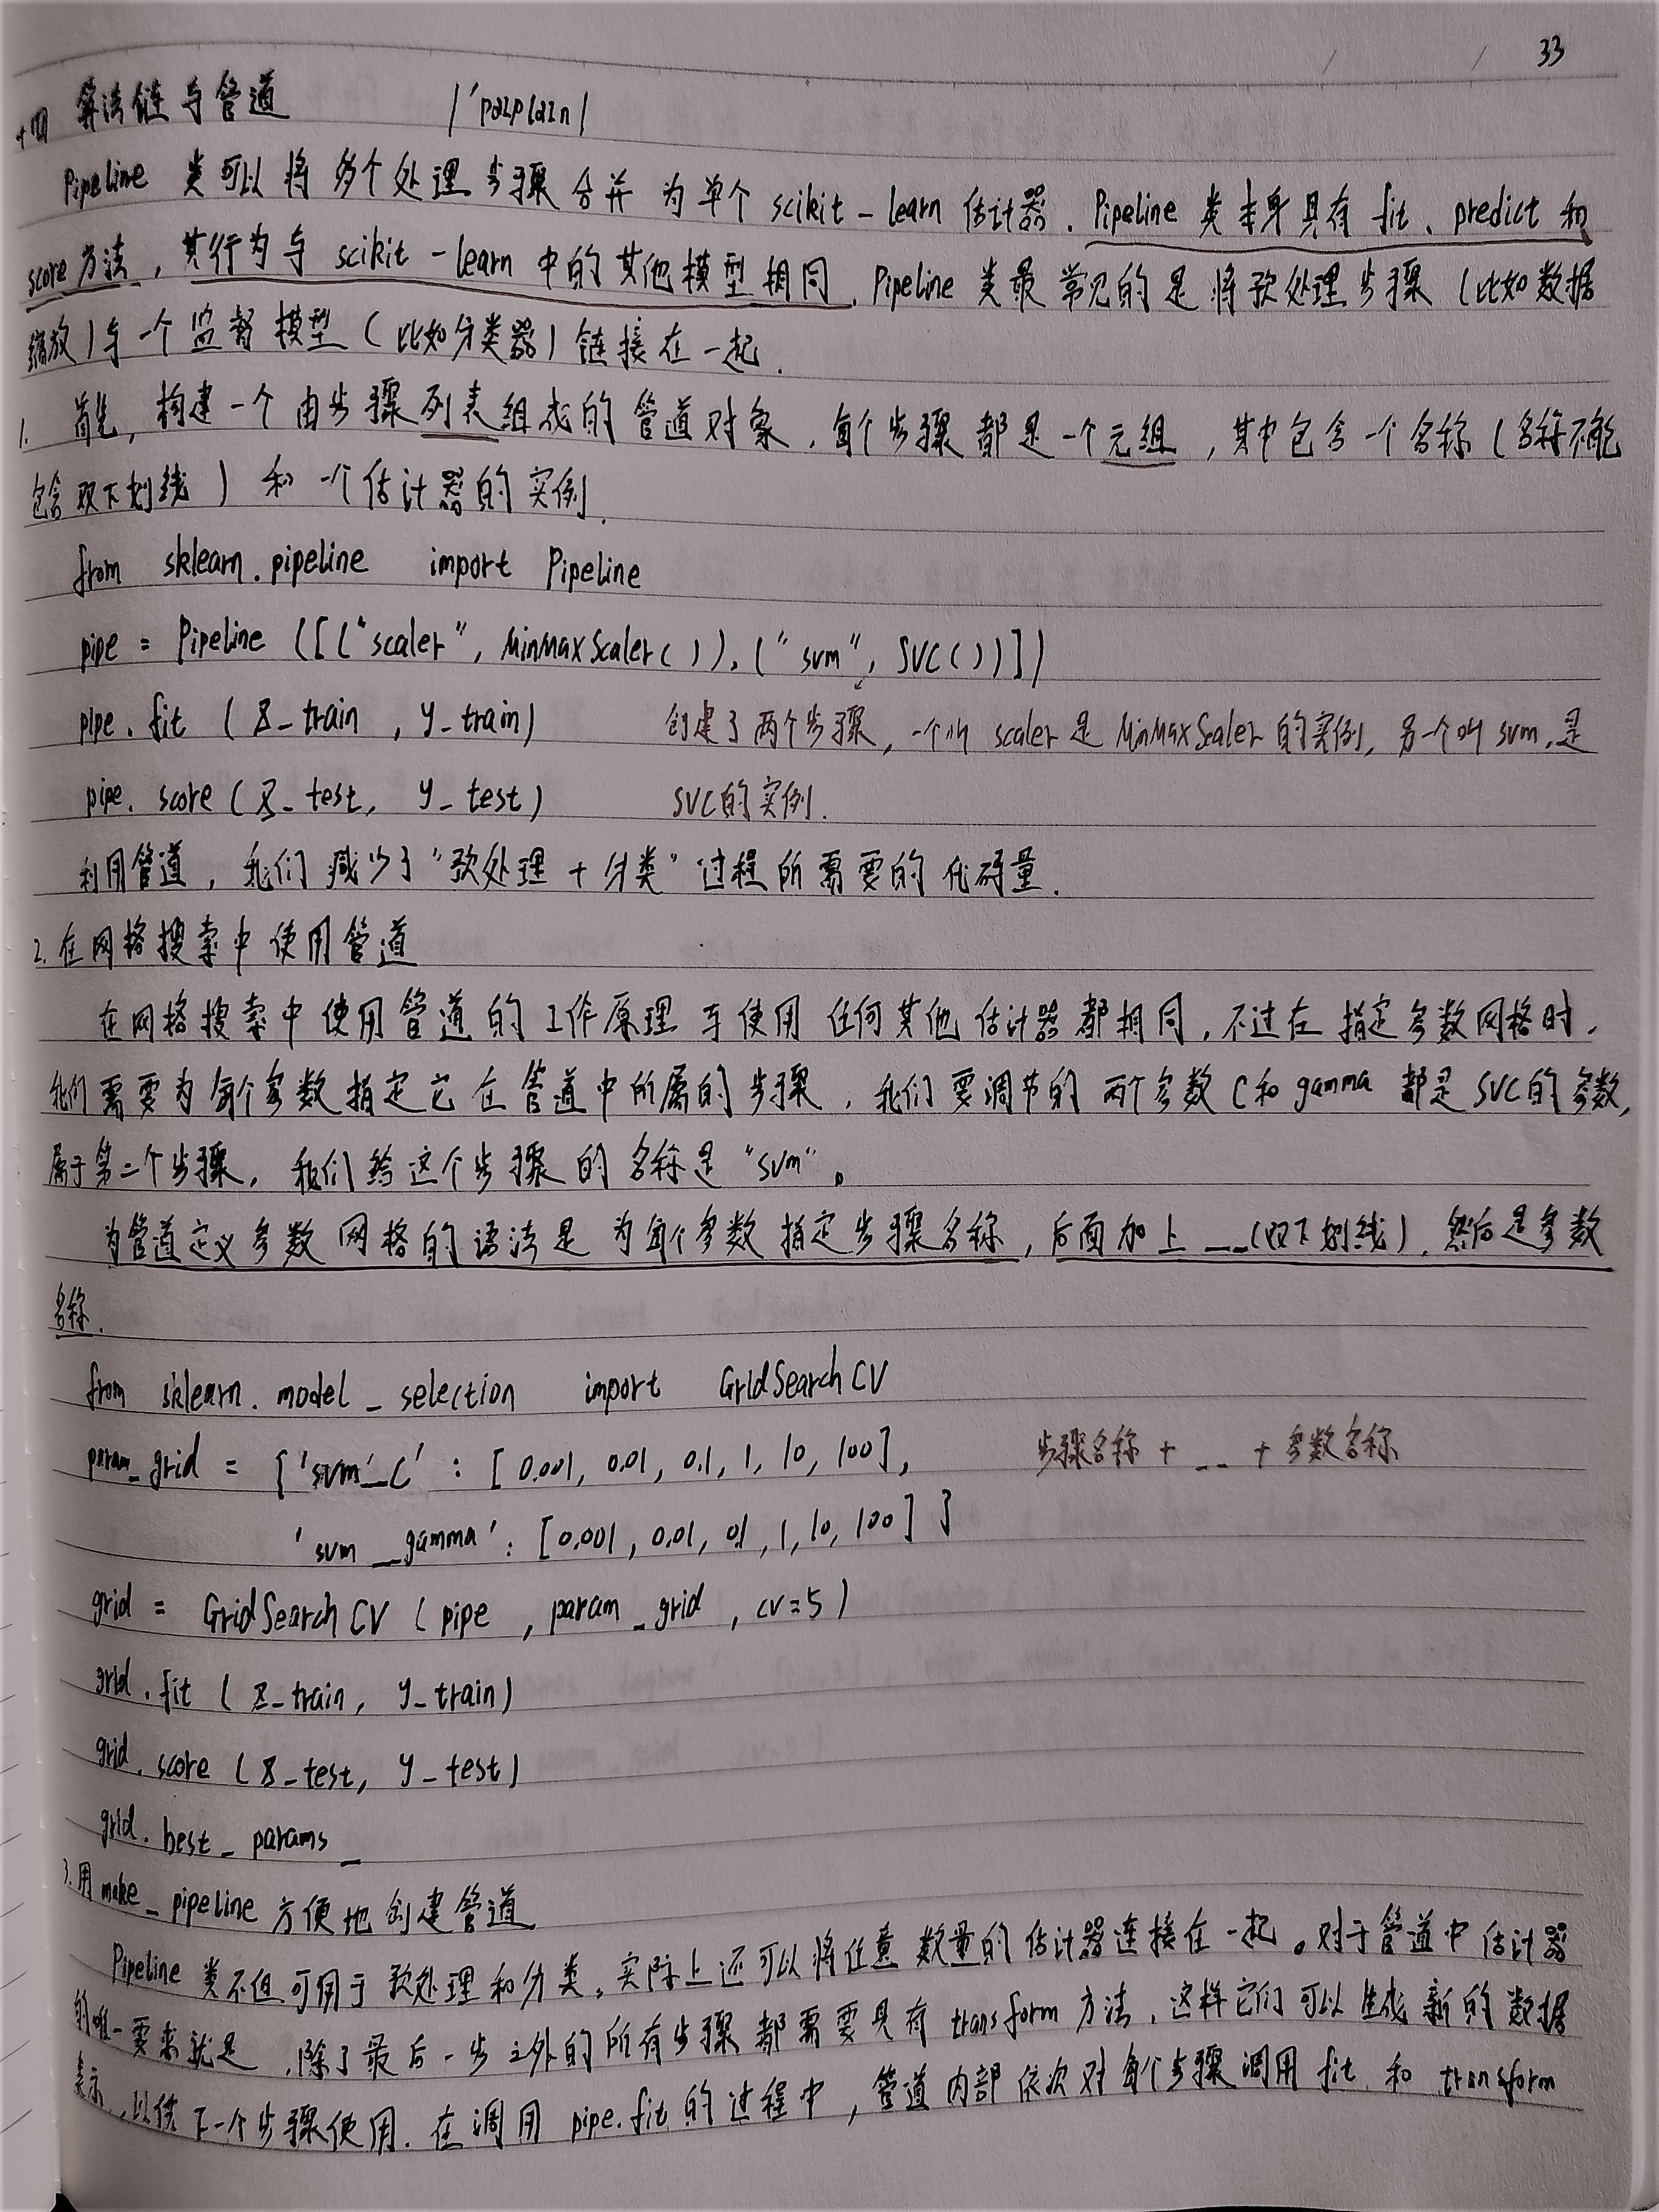 33
十四 算法链与管道 /'paɪplaɪn/
Pipeline 类可以将多个处理步骤合并为单个 scikit-learn 估计器. Pipeline 类本身具有 fit、predict 和
score 方法, 其行为与 scikit-learn 中的其他模型相同. Pipeline 类最常见的是将预处理步骤 (比如数据
缩放) 与一个监督模型 (比如分类器) 链接在一起.
1. 首先, 构建一个由步骤列表组成的管道对象, 每个步骤都是一个元组, 其中包含一个名称 (名称不能
包含双下划线) 和一个估计器的实例.
from sklearn.pipeline import Pipeline
pipe = Pipeline ([("scaler", MinMaxScaler()), ("svm", SVC())])
pipe.fit (X_train, y_train) 创建了两个步骤, 一个叫 scaler 是 MinMaxScaler 的实例, 另一个叫 svm, 是
pipe.score (X_test, y_test) SVC的实例.
利用管道, 我们减少了"预处理+分类"过程所需要的代码量.
2. 在网格搜索中使用管道
在网格搜索中使用管道的工作原理与使用任何其他估计器都相同, 不过在指定参数网格时,
我们需要为每个参数指定它在管道中所属的步骤, 我们要调节的两个参数 C和 gamma 都是 SVC的参数,
属于第二个步骤, 我们给这个步骤的名称是 "svm"。
为管道定义参数网格的语法是为每个参数指定步骤名称, 后面加上 __(双下划线), 然后是参数
名称.
from sklearn.model_selection import GridSearchCV
param_grid = {'svm'_C' : [0.001, 0.01, 0.1, 1, 10, 100], 步骤名称 + __ + 参数名称
'svm__gamma' : [0.001, 0.01, 0.1, 1, 10, 100] }
grid = GridSearchCV (pipe, param_grid, cv=5)
grid.fit (X_train, y_train)
grid.score (X_test, y_test)
grid.best_params_
3. 用 make_pipeline 方便地创建管道
Pipeline 类不但可用于预处理和分类, 实际上还可以将任意数量的估计器连接在一起。对于管道中估计器
的唯一要求就是, 除了最后一步之外的所有步骤都需要具有 transform 方法, 这样它们可以生成新的数据
表示, 以供下一个步骤使用. 在调用 pipe.fit 的过程中, 管道内部依次对每个步骤调用 fit 和 transform